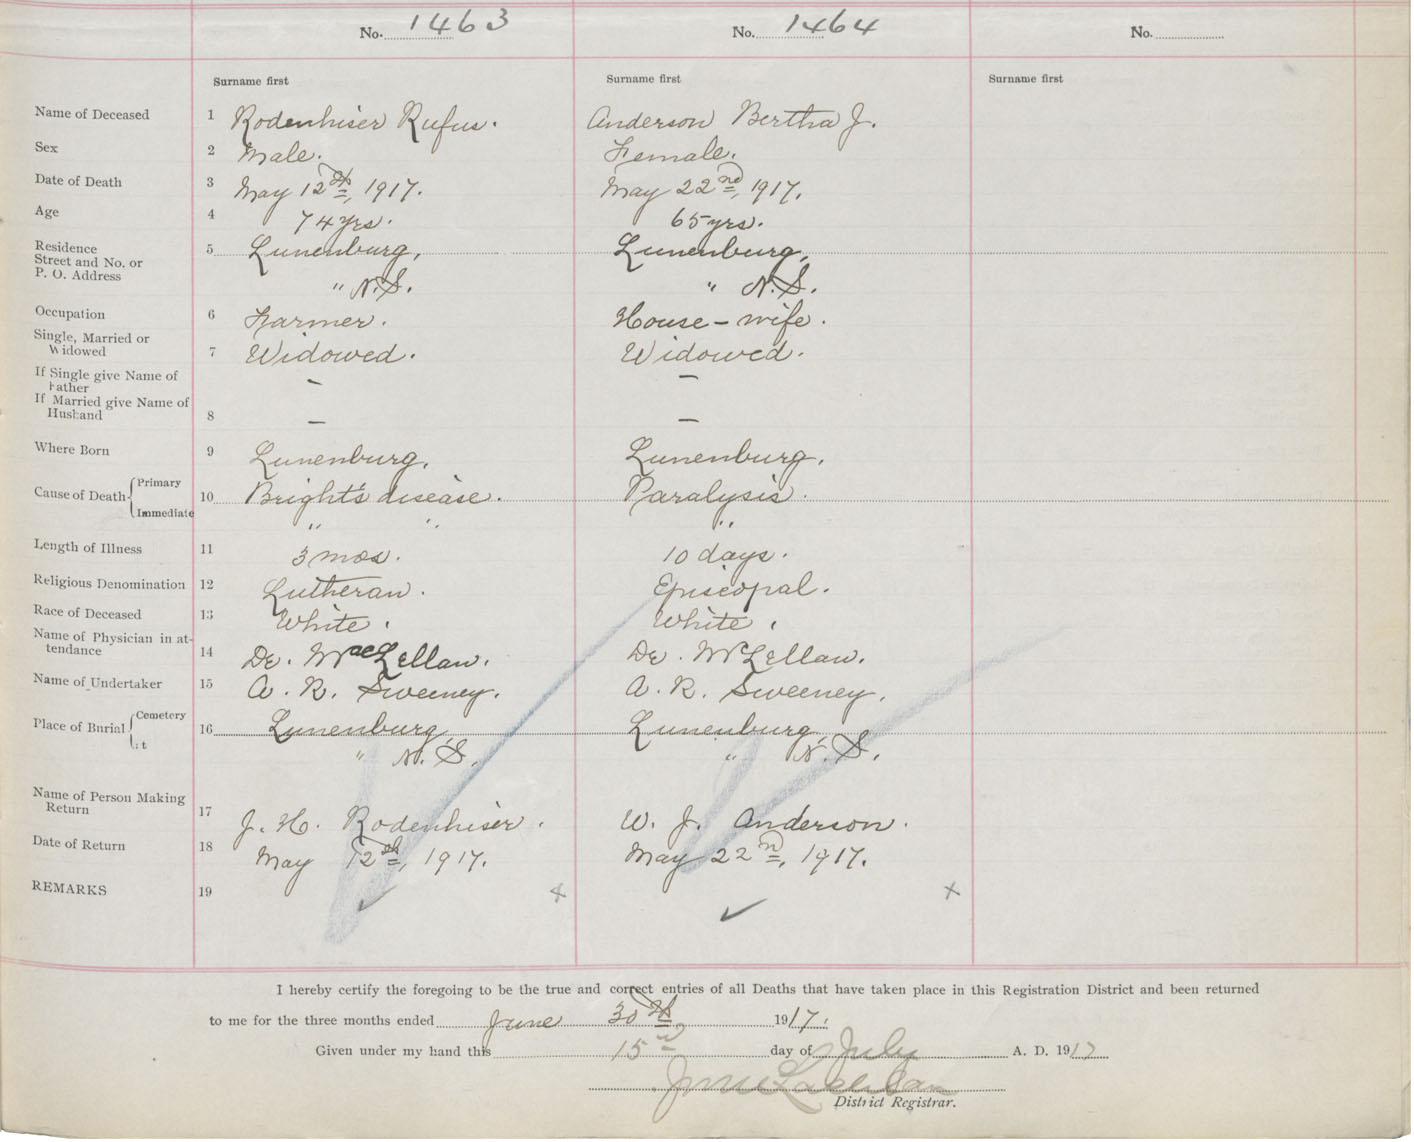 No. 1463 No. 1464 No.
Surname first Surname first Surname first
Name of Deceased 1 Rodenhiser Rufus. Anderson Bertha J.
Sex 2 Male. Female.
Date of Death 3 May 12th, 1917. May 22nd, 1917.
Age 4 74 yrs. 65 yrs.
Residence 5 Lunenburg, Lunenburg,
Street and No. or
P. O. Address " N.S. " N.S.
Occupation 6 Farmer. House-wife.
Single, Married or
Widowed 7 Widowed. Widowed.
If Single give Name of
Father – –
If Married give Name of
Husband 8 – –
Where Born 9 Lunenburg, Lunenburg,
Cause of Death { Primary
10 Bright's disease. Paralysis.
Immediate " " "
Length of Illness 11 3 mos. 10 days.
Religious Denomination 12 Lutheran. Episcopal.
Race of Deceased 13 White. White.
Name of Physician in at-
tendance 14 Dr. MacLellan. Dr. McLellan.
Name of Undertaker 15 A. R. Sweeney. A. R. Sweeney.
Place of Burial { Cemetery
16 Lunenburg, Lunenburg,
At " N.S. " N.S.
Name of Person Making
Return 17 J. H. Rodenhiser. W. J. Anderson.
Date of Return 18 May 12th, 1917. May 22n, 1917.
REMARKS 19 ✓ x ✓ x
I hereby certify the foregoing to be the true and correct entries of all Deaths that have taken place in this Registration District and been returned
to me for the three months ended June 30th 1917.
Given under my hand this 15 day of July A. D. 1917
District Registrar.